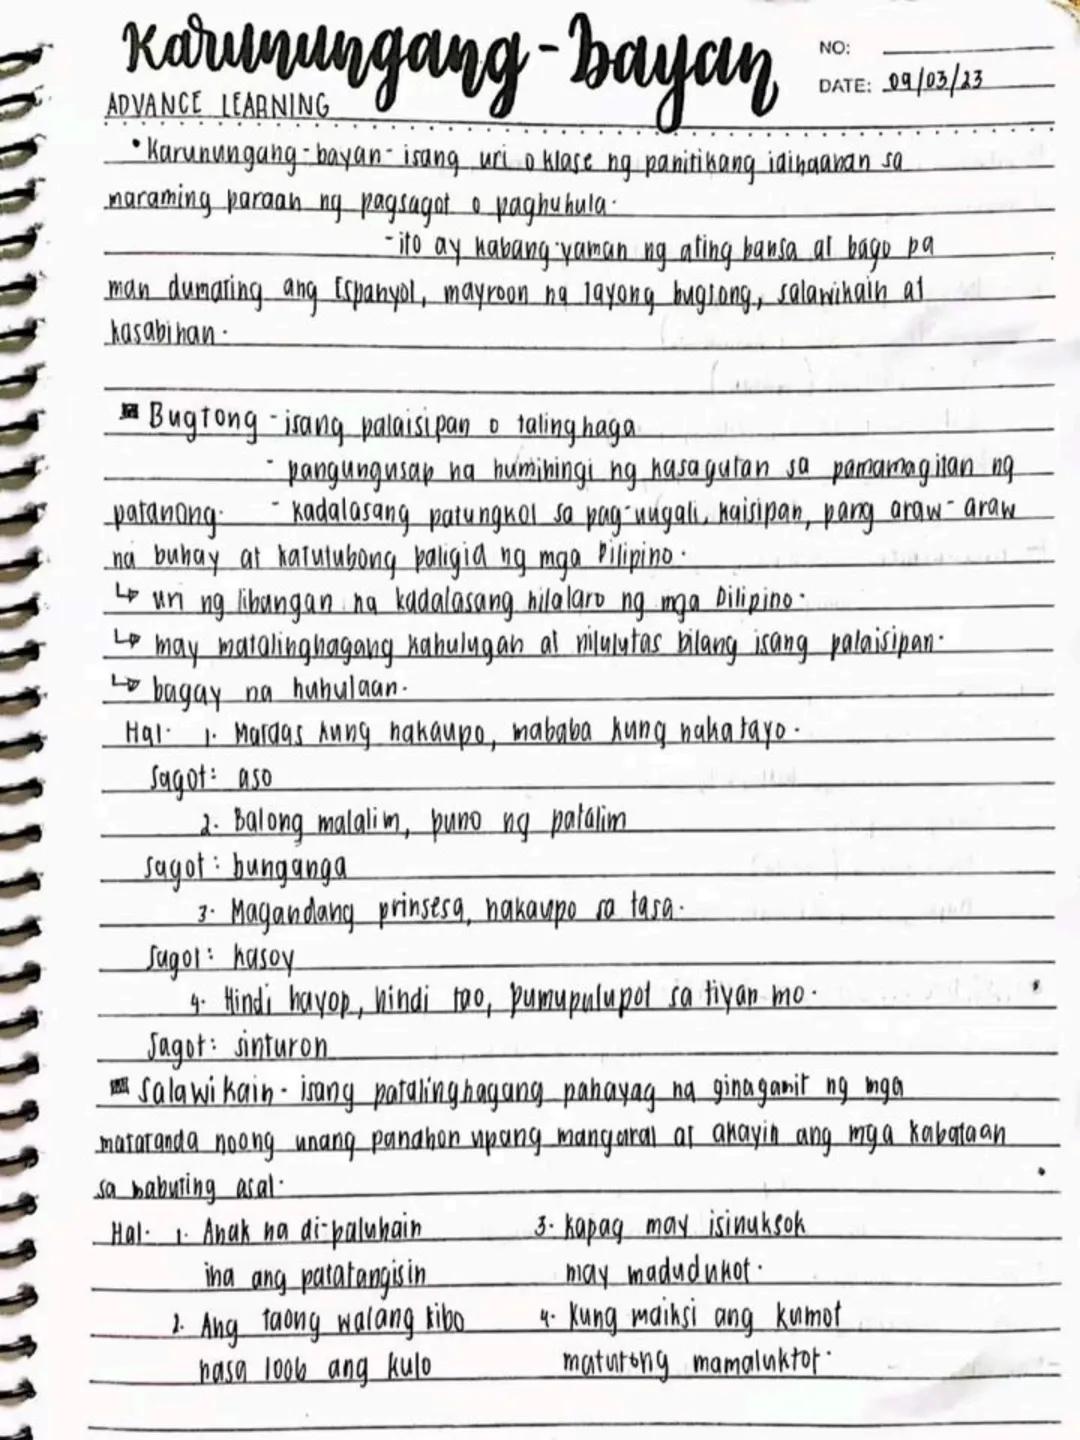 Karunungang-bayan
NO:
DATE: 09/03/23
ADVANCE LEARNING
• Karunungang-bayan- isang uri o klase ng panitikang idinaanan sa
maraming paraan ng pagsagot o paghuhula.
- ito ay kabang-yaman ng ating bansa at bago pa
man dumating ang Espanyol, mayroon na tayong bugtong, salawikain at
kasabihan.
Bugtong - isang palaisipan o talinghaga
- pangungusap na humihingi ng kasagutan sa pamamagitan ng
patanong. - kadalasang patungkol sa pag-uugali, kaisipan, pang araw-araw
na buhay at katutubong paligid ng mga Pilipino.
↳ uri ng libangan na kadalasang nilalaro ng mga Pilipino.
↳ may matalinghagang kahulugan at nilulutas bilang isang palaisipan.
↳ bagay na huhulaan.
Hal. 1. Mataas kung nakaupo, mababa kung nakatayo.
Sagot: aso
2. Balong malalim, puno ng patalim
Sagot: bunganga
3. Magandang prinsesa, nakaupo sa tasa.
Sagot: kasoy
4. Hindi hayop, hindi tao, pumupulupot sa tiyan mo.
Sagot: sinturon
Salawikain - isang patalinghagang pahayag na ginagamit ng mga
matatanda noong unang panahon upang mangaral at akayin ang mga kabataan
sa mabuting asal.
Hal. 1. Anak na di-paluhain
ina ang patatangisin
2. Ang taong walang kibo
nasa loob ang kulo
3. Kapag may isinuksok
may madudukot.
4. Kung maiksi ang kumot
matutong mamaluktot.